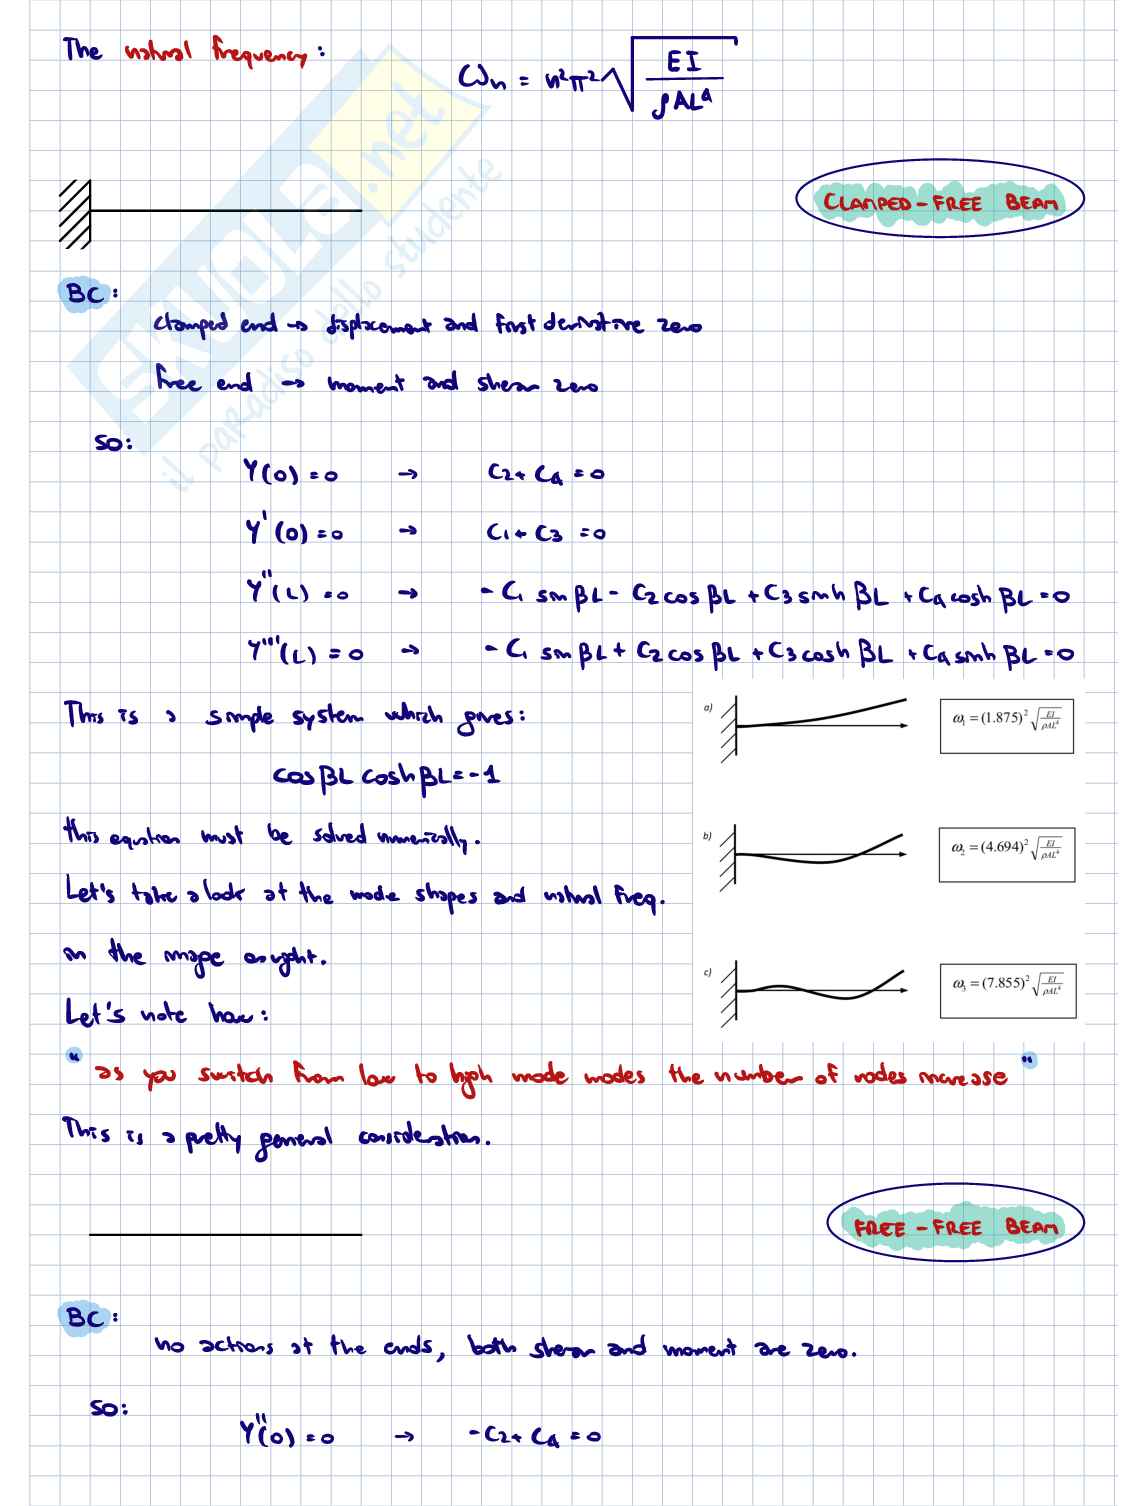 The natural frequency:
ωn = n²π² √(EI / ρAL⁴)
CLAMPED-FREE BEAM
BC:
clamped end → displacement and first derivative zero
free end → moment and shear zero
SO:
Y(0) = 0 → C2 + C4 = 0
Y'(0) = 0 → C1 + C3 = 0
Y''(L) = 0 → - C1 sin βL - C2 cos βL + C3 sinh βL + C4 cosh βL = 0
Y'''(L) = 0 → - C1 sin βL + C2 cos βL + C3 cosh βL + C4 sinh βL = 0
This is a simple system which gives:
cos βL cosh βL = -1
this equation must be solved numerically.
Let's take a look at the mode shapes and natural freq.
in the image on right.
Let's note how:
a) ω₁ = (1.875)² √(EI / ρAL⁴)
b) ω₂ = (4.694)² √(EI / ρAL⁴)
c) ω₃ = (7.855)² √(EI / ρAL⁴)
" as you switch from low to high mode modes the number of nodes increase "
This is a pretty general consideration.
FREE - FREE BEAM
BC:
no actions at the ends, both shear and moment are zero.
SO:
Y''(0) = 0 → -C2 + C4 = 0
SKUOLA.net
il paradiso dello studente